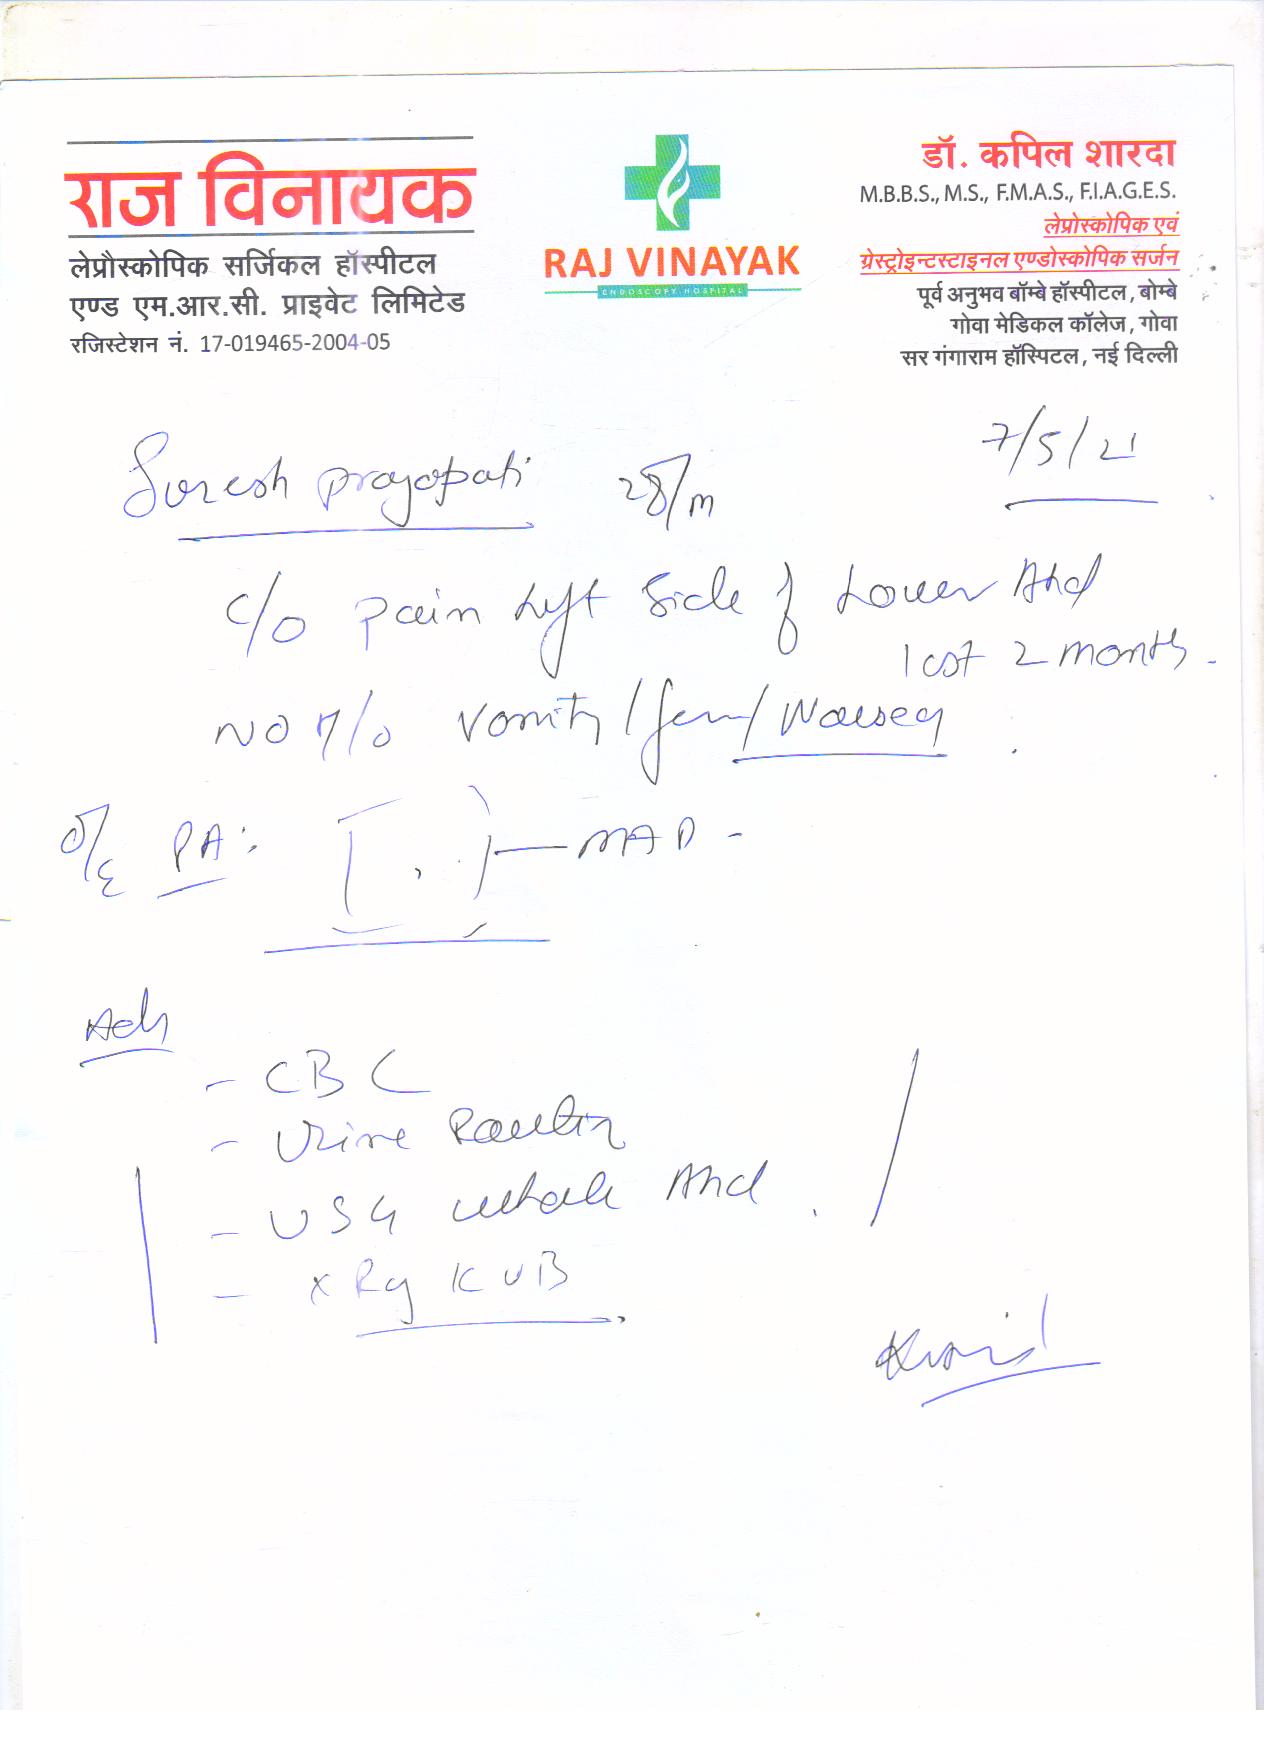 राज विनायक
लेप्रौस्कोपिक सर्जिकल हॉस्पीटल
एण्ड एम.आर.सी. प्राइवेट लिमिटेड
रजिस्टेशन नं. 17-019465-2004-05
RAJ VINAYAK
ENDOSCOPY HOSPITAL
डॉ. कपिल शारदा
M.B.B.S., M.S., F.M.A.S., F.I.A.G.E.S.
लेप्रोस्कोपिक एवं
ग्रेस्ट्रोइन्टस्टाइनल एण्डोस्कोपिक सर्जन
पूर्व अनुभव बॉम्बे हॉस्पीटल, बोम्बे
गोवा मेडिकल कॉलेज, गोवा
सर गंगाराम हॉस्पिटल, नई दिल्ली
7/5/21
Suresh Prajapati 28/m
C/O Pain Left Side of Lower Abd
last 2 month.
NO H/O Vomity / fever / Nausea
O/E PA: NAD -
Adv
- CBC
- Urine Routin
- USG whole Abd.
- X Ray KUB